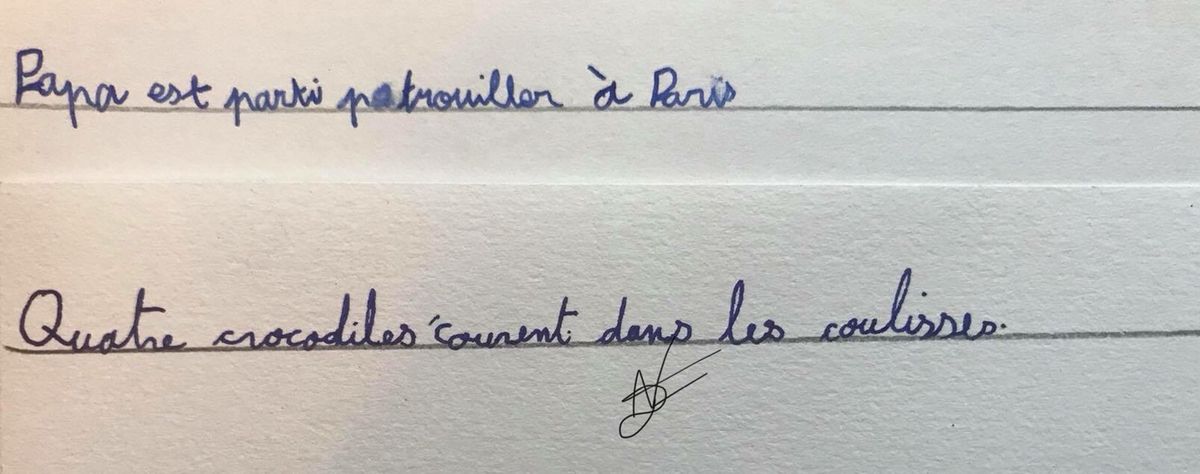 Papa est parti patrouiller à Paris
Quatre crocodiles courent dans les coulisses.